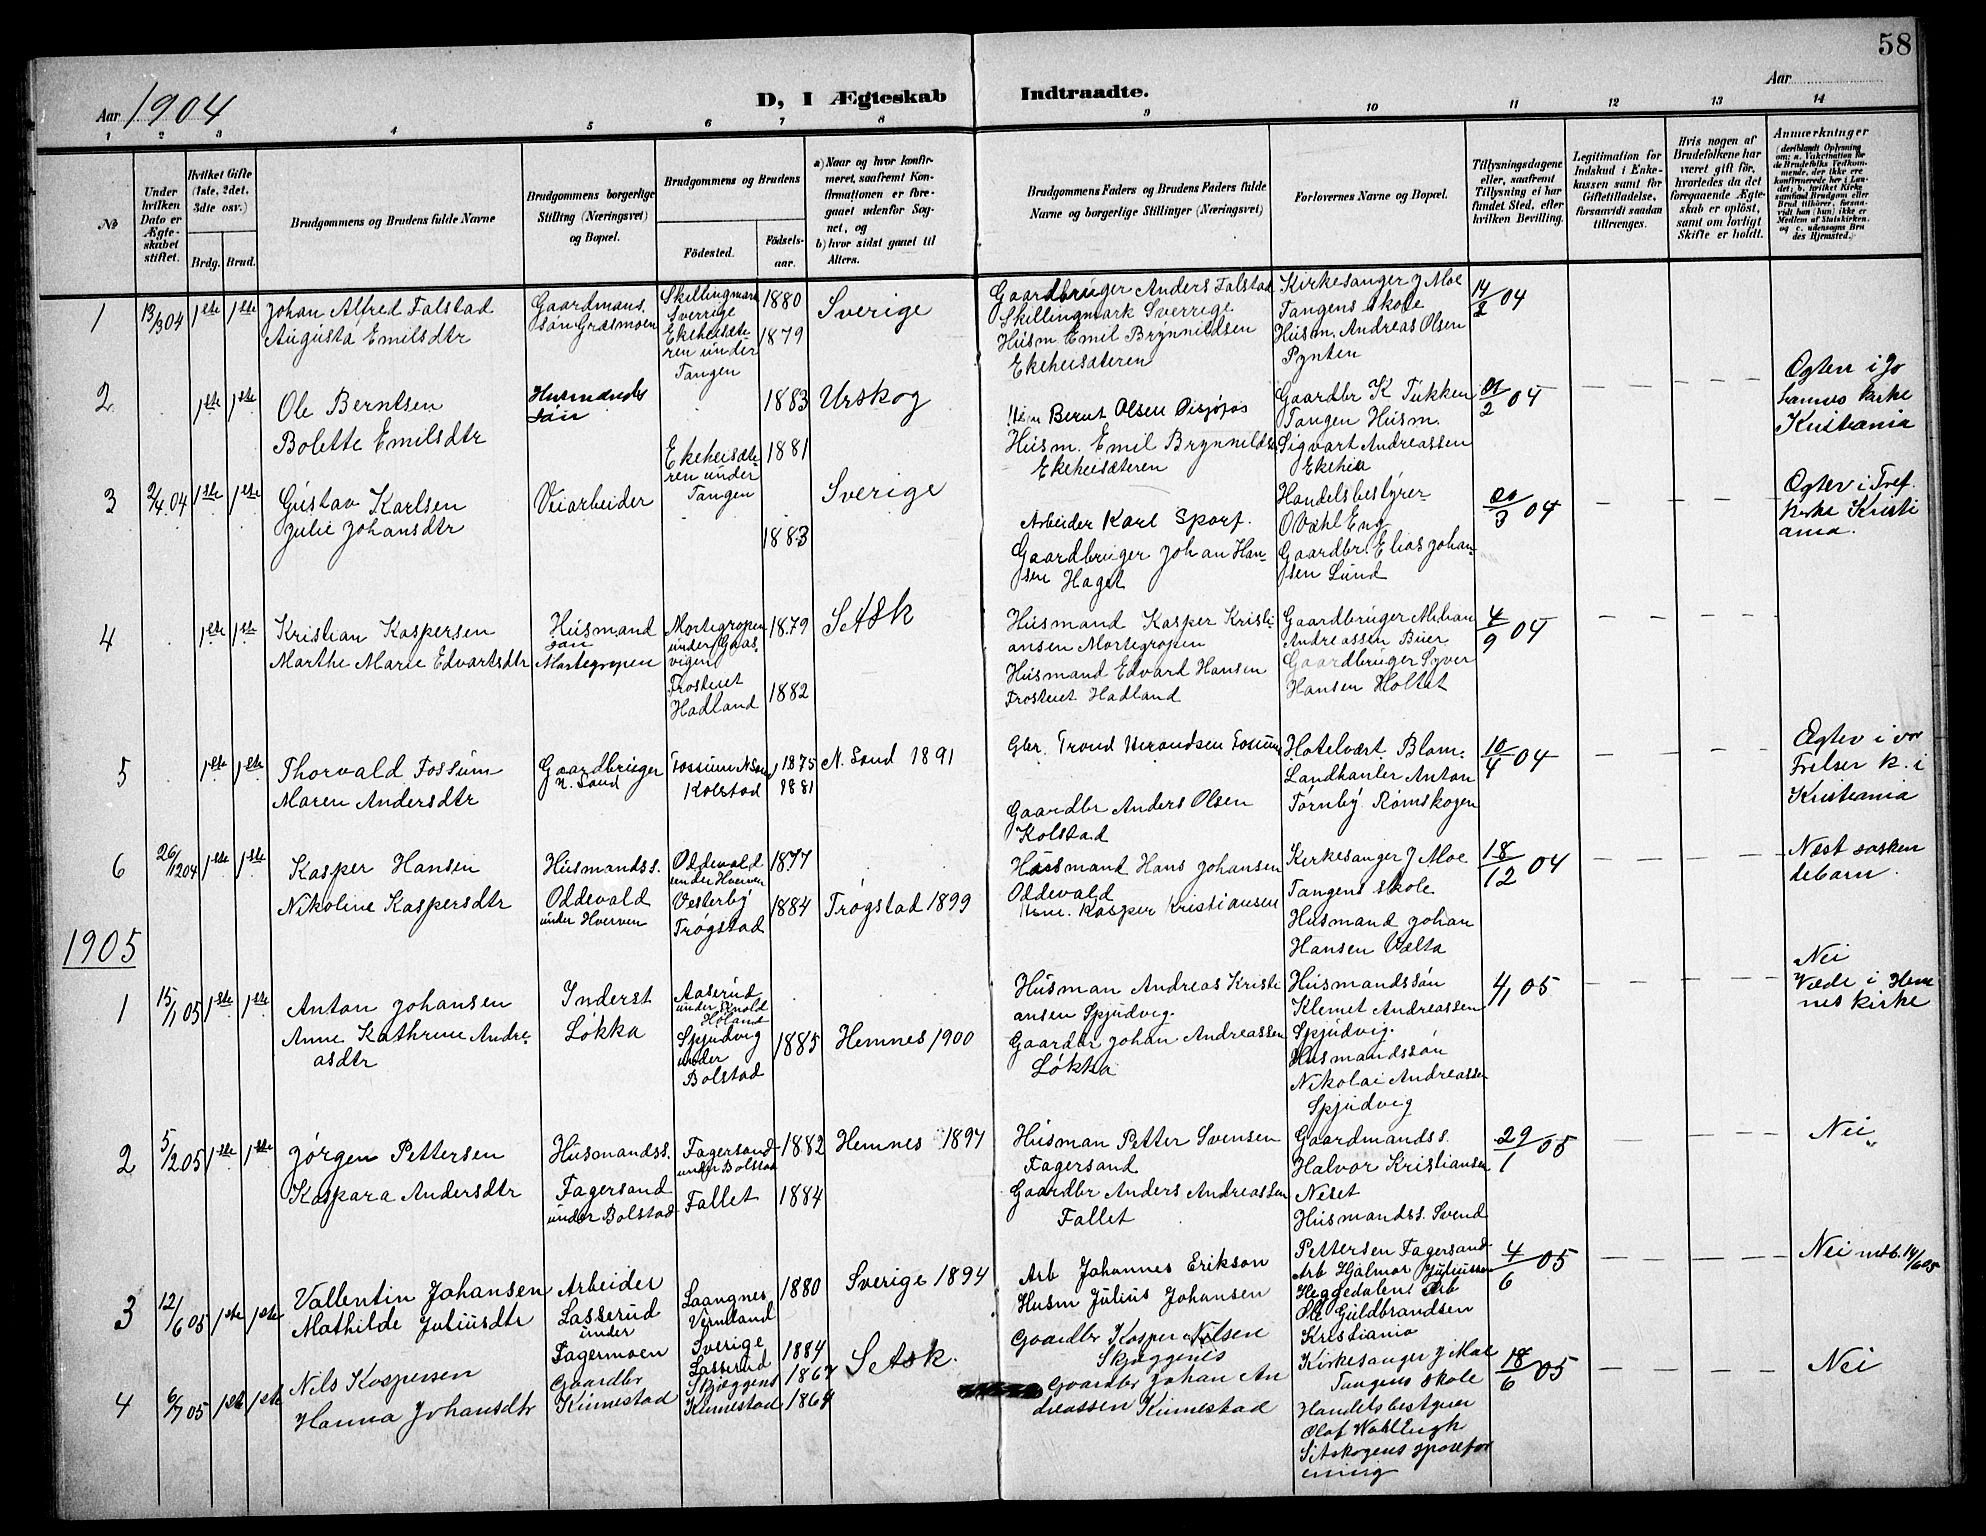 58
Aar 1904
D, I Ægteskab Indtraadte.
Aar
1 2 3 4 5 6 7 8 9 10 11 12 13 14
No
Under hvilken Dato er Ægteskabet stiftet.
Hvilket Gifte (1ste, 2det, 3die osv.)
Brdg. Brud.
Brudgommens og Brudens fulde Navne
Brudgommens borgerlige Stilling (Næringsvei) og Bopæl.
Brudgommens og Brudens
Fødested.
Fødselsaar.
a) Naar og hvor konfirmeret, saafremt Konfirmationen er foregaaet udenfor Sognet, og
b) hvor sidst gaaet til Alters.
Brudgommens Faders og Brudens Faders fulde Navne og borgerlige Stillinger (Næringsvei)
Forlovernes Navne og Bopæl.
Tillysningsdagene eller, saafremt Tillysning ei har fundet Sted, efter hvilken Bevilling.
Legitimation for Indskud i Enkekassen samt for Giftetilladelse, forsaavidt saadan tiltrænges.
Hvis nogen af Brudefolkene har været gift før, hvorledes da det foregaaende Ægteskab er opløst, samt om lovligt Skifte er holdt.
Anmerkninger
(deriblandt Oplysning om: a. Vakcination for de Brudefolks Vedkommende, der ikke ere konfirmerede her i Landet; b. hvilket Kirkesamfund Brudgom eller Brud tilhører, forsaavidt han (hun) ikke er Medlem af Statskirken, og c. udensogns Brudes Hjemsted.)
1 13/3 04 1ste 1ste
Johan Alfred Falstad
Augusta Emilsdtr
Gaardmans
søn Græsmoen
Skillingmark
Sverrige
Ekeheisæteren under
Tangen
1880
1879
Sverige
Gaardbruger Anders Falstad
Skillingmark Sverrige
Husm. Emil Brynnildsen
Ekeheisæteren
Kirkesanger J Moe
Tangens skole
Husm. Andreas Olsen
Pynten
14/2 04
2 1ste 1ste
Ole Berntsen
Bolette Emilsdtr
Husmands
søn
Ekeheisæteren under
Tangen
1883
1881
Urskog
Berut Olsen
Husm. Emil Brynnilds
Ekeheisæteren
Gaardbr K Tukken
Tangen Husm.
Sigvart Andreassen
Ekehei
21/2 04
Ogtev i Johannes kirke
Kristiania
3 2/4 04 1ste 1ste
Gustav Karlsen
Julie Johansdtr
Veiarbeider
1883
Sverige
Arbeider Karl Sporf.
Gaardbruger Johan Hansen Haget
Handelsbestyrer
O Væhl Eng
Gaardbr. Elias Johansen Lund
20/3 04
Ogtev i Tref.
kirke Kristiania.
4 1ste 1ste
Kristian Kaspersen
Marthe Marie Edvartsdtr
Husmand
søn
Mortegropen
Mortegropen
under Gaasvigen
Frosteiet
Hadland
1879
1882
S Ask
Husmand Kasper Kristiansen Mortegropen
Husmand Edvard Hansen
Frosteiet Hadland
Gaardbruger
Andreassen Buer
Gaardbruger Syver
Hansen Holtet
4/9 04
5 1ste 1ste
Thorvald Fossum
Maren Andersdtr
Gaardbruger
N. Sand
Fossum N San
Kolstad
1875
1881
N. Sand 1891
Gbr. Trond
Gaardbr Anders Olsen
Kolstad
Hotelvært Blom.
Landhanler Anton
Tørnby Rømskogen
10/4 04
Ogtev i vor
Frelser k. i
Kristiania
6 26/12 04 1ste 1ste
Kasper Hansen
Nikoline Kaspersdtr
Husmandss.
Oddevald
under Hverven
Oddevald
under Hverven
Vesterby
Trøgstad
1877
1884
Trøgstad 1899
Husmand Hans Johansen
Oddevald
Kasper Kristiansen
Kirkesanger J Moe
Tangens skole
Husmand Johan
Hansen Vælta
18/12 04
Næst søskendebarn.
1905
1 15/1 05 1ste 1ste
Anton Johansen
Anne Kathrine Andreasdtr
Inderst
Løkka
Aaserud
Høland
Spjudvig
under
Bolstad
1885
Hemnes 1900
Husman Andreas Kristiansen Spjudvig.
Gaardbr Johan Andreassen
Løkka
Husmandssøn
Klemet Andreassen
Spjudvig.
Husmandssøn
Nikolai Andreassen
Spjudvig
4/1 05
Nei
Viede i Hemnes kirke
2 5/2 05 1ste 1ste
Jørgen Pettersen
Kaspara Andersdtr
Husmandss.
Fagersand
under Bolstad
Fagersand
under Bolstad
Fallet
1882
1884
Hemnes 1897
Husman Petter Svensen
Fagersand
Gaardbr Anders Andreassen
Fallet
Gaardmandss.
Halvor Kristiansen
Neset
Husmandss. Svend
Pettersen Fagersand
29/1 05
Nei
3 12/6 05 1ste 1ste
Vallentin Johansen
Mathilde Juliusdtr
Arbeider
Lasserud
under
Fagermoen
Laangnes
Vermland
Sverige
Lasserud
1880
1884
Sverige 1894
Arb Johannes Erikson
Husm Julius Johansen
Arb Hjalmar Juliussen
Heggedalen Arb
Ole Guldbrandsen
Kristiania
4/6 05
Nei mdb. 14/6 05
4 6/7 05 1ste 1ste
Nils Kaspersen
Hanna Johansdtr
Gaardbr
Kinnestad
Skjæggenes
Kinnestad
1867
1864
S Ask.
Gaardbr Kasper Nilsen
Skjæggenes
Gaardbr Johan Andreassen Kinnestad
Kirkesanger J Moe
Tangens skole
Handelsbestyrer
Olof Wahl Engh
S Askogens sporeforening
18/6 05
Nei